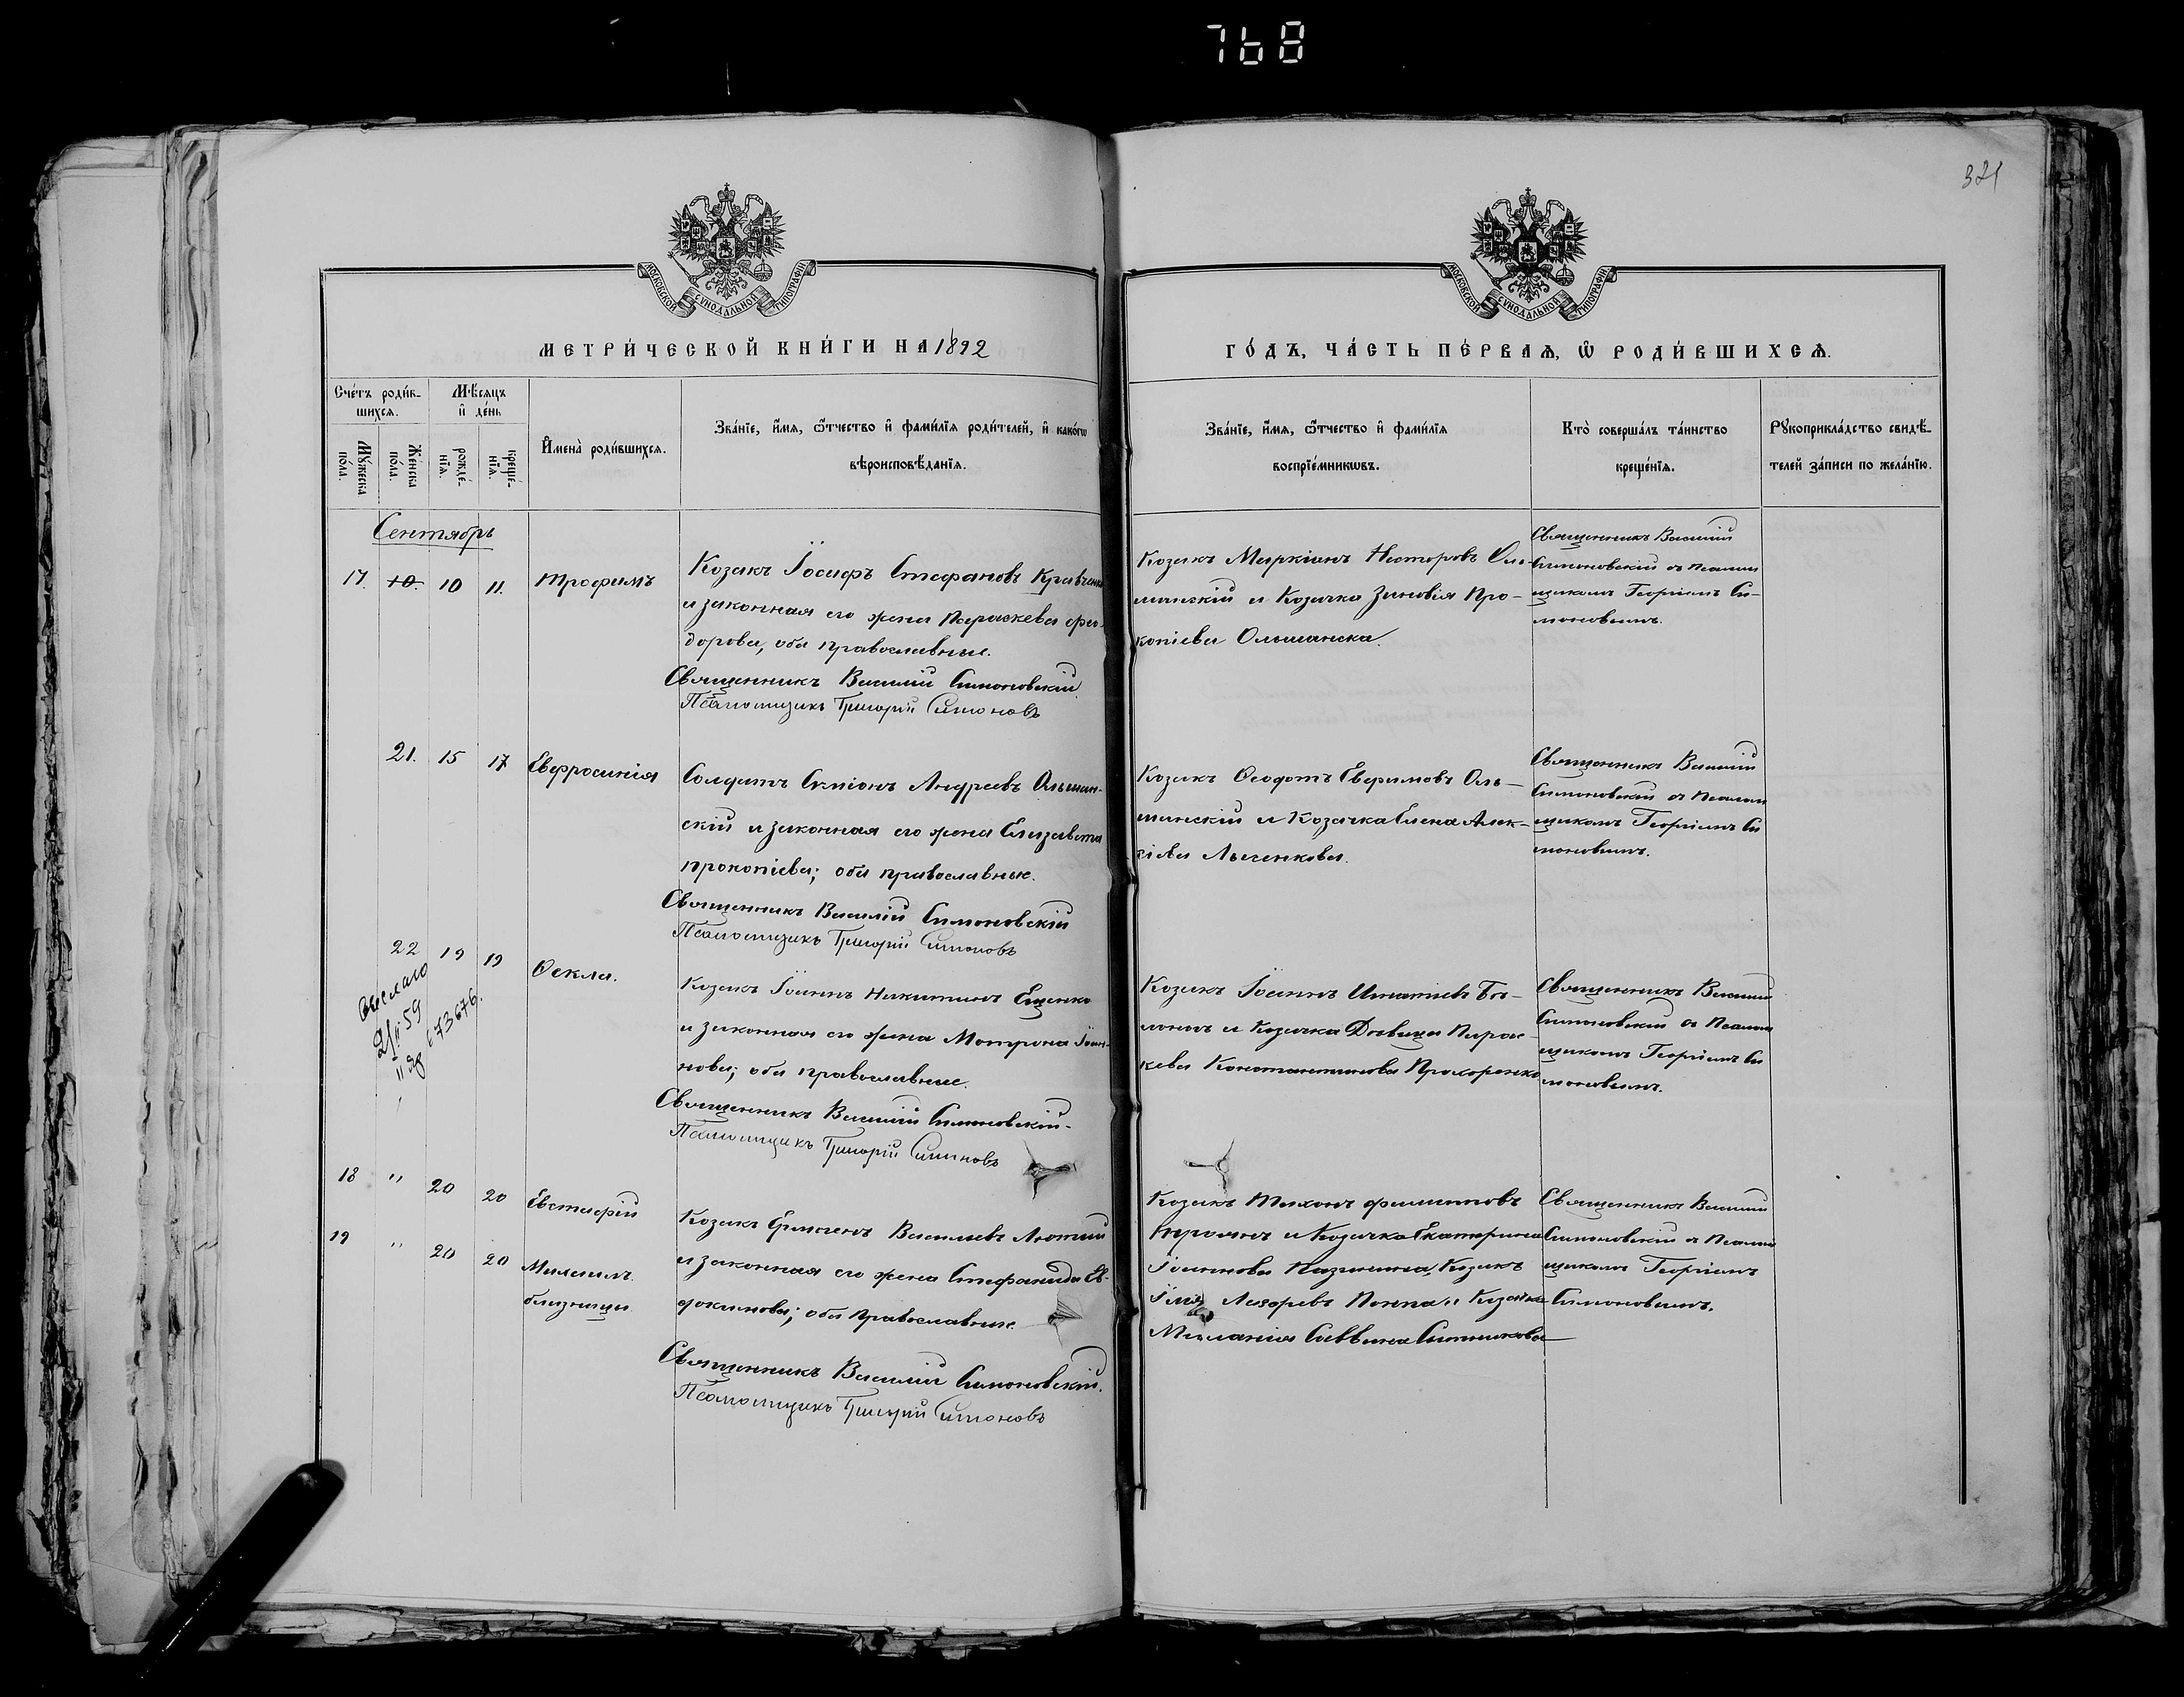 768
321
МОСКОВСКОЙ СѴНОДАЛЬНОЙ ТИПОГРАФІИ
МОСКОВСКОЙ СѴНОДАЛЬНОЙ ТИПОГРАФІИ
МЕТРИ́ЧЕСКОЙ КНИ́ГИ НА 1892
ГО́ДЪ, ЧА́СТЬ ПЕ́РВАѦ, Ѡ҆ РОДИ́ВШИХСѦ.
Сче́тъ роди́в-
шихсѧ.
Мѣ́сѧцъ
и҆ де́нь
Мꙋ́жеска по́ла.
Же́нска по́ла.
рожде́-нїѧ.
креще́-нїѧ.
И҆мена̀ роди́вшихсѧ.
Зва́нїе, и҆́мѧ, ѻ҆́тчество и҆ фами́лїѧ роди́телей, и҆ како́гѡ
вѣроисповѣ́данїѧ.
Зва́нїе, и҆́мѧ, ѻ҆́тчество и҆ фами́лїѧ
воспрїе́мникѡвъ.
Кто̀ соверша́лъ та́инство
креще́нїѧ.
Рꙋкоприкла́дство свидѣ́-
телей за́писи по жела́нїю.
Сентябрь
17. 10. 10 11. Трофимъ
Козакъ Іосифъ Стефановъ Кравченко
и законная его жена Параскева Фео-
дорова, оба православные.
Священникъ Василій Симоновскій
Псаломщикъ Григорій Симоновъ
Козакъ Маркіанъ Несторовъ Оль-
шанскій и Козачка Зиновія Про-
копіева Ольшанска.
Священникъ Василій
Симоновскій съ Псалом
щикомъ Георгіемъ Си-
моновымъ.
21. 15 17 Евфросинія
Солдатъ Симіонъ Андреевъ Ольшан-
скій и законная его жена Елизавета
Прокопіева; оба православные.
Священникъ Василій Симоновскій
Псаломщикъ Григорій Симоновъ
Козакъ Ѳеодотъ Евфимовъ Оль-
шанскій и Козачка Елена Алек-
сіева
Священникъ Василій
Симоновскій съ Псалом
щикомъ Георгіемъ Си
моновымъ.
22 19 19 Ѳекла.
59
673676.
Козакъ Іоаннъ Никитинъ Ещенко
и законная его жена Матрона Іоан-
нова; оба православные.
Священникъ Василій Симоновскій
Псаломщикъ Григорій Симоновъ
Козакъ Іоаннъ Игнатіевъ
и Козачка Дѣвица Парас-
кева Константинова Прохоренко
Священникъ Василій
Симоновскій съ Псалом
щикомъ Георгіемъ Си
моновымъ.
18 " 20 20 Евстафій
19 " 20 20 Малахимъ
близнецы
Козакъ Ермогенъ Васильевъ Лютый
и законная его жена Стефанида Ев-
докимова; оба православные.
Священникъ Василій Симоновскій.
Псаломщикъ Григорій Симоновъ
Козакъ Тихонъ Филипповъ
Троянъ и Козачка Екатерина
Іоаннова Козакъ
Лазаревъ и Козачка
Меланія Саввина Ситникова
Священникъ Василій
Симоновскій съ Псалом
щикомъ Георгіемъ
Симоновымъ.